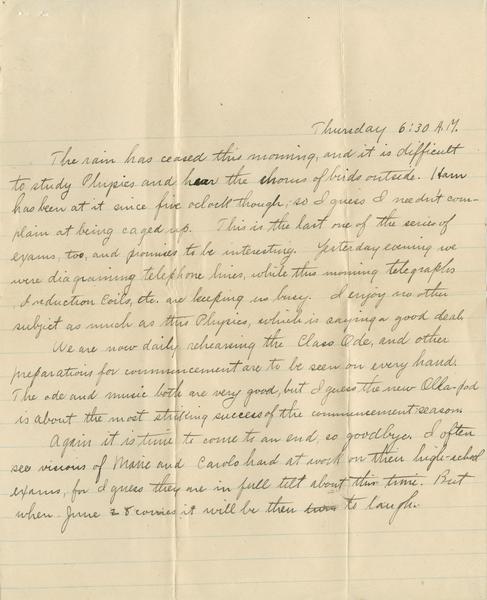 Thursday 6:30 A.M.
The rain has ceased this morning, and it is difficult
to study Physics and hear the chorus of birds outside. Ham
has been at it since five oclock though, so I guess I needn't com-
plain at being caged up. This is the last one of the series of
exams, too, and promises to be interesting. Yesterday evening we
were diagraming telephone lines, while this morning telegraphs
Induction Coils, etc. are keeping us busy. I enjoy no other
subject as much as this Physics, which is saying a good deal.
We are now daily rehearsing the Class Ode, and other
preparations for commencement are to be seen on every hand.
The ode and music both are very good, but I guess the new Olla-pod
is about the most striking success of the commencement season.
Again it is time to come to an end, so goodbye. I often
see visions of Marie and Carols hard at work on their high-school
exams, for I guess they are in full tilt about this time. But
when June 28 comes it will be their turn to laugh.